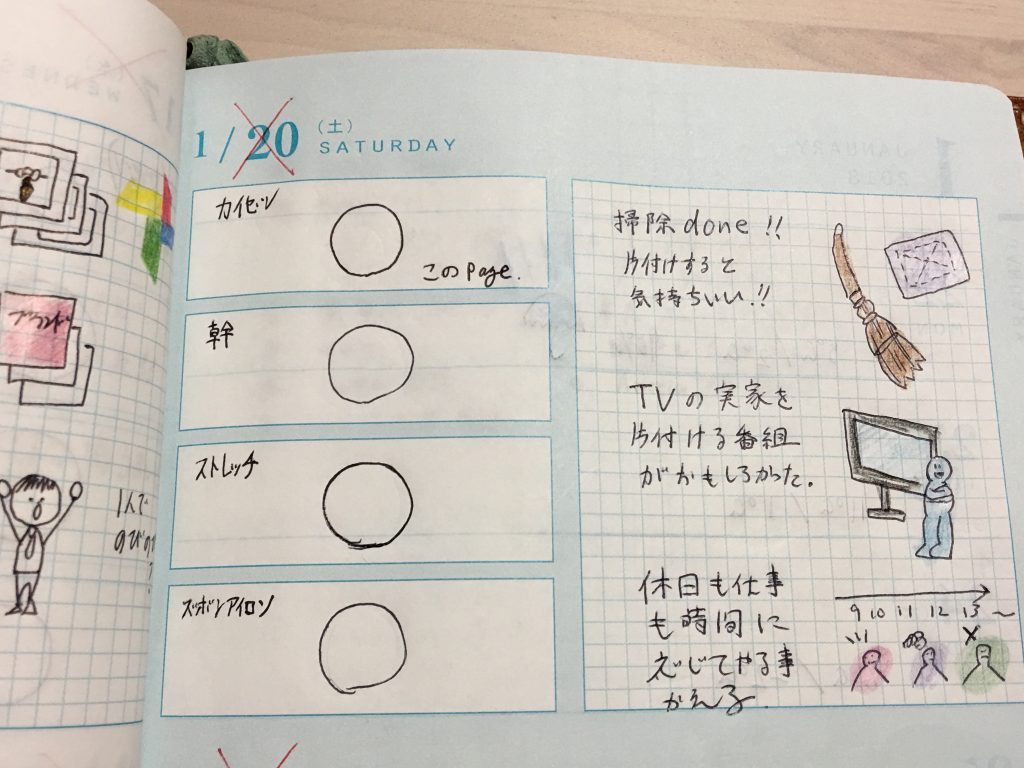 ブランド
1人で
1/20
(土)
SATURDAY
カイゼン
このpage.
幹
ストレッチ
ズボンアイロン
掃除done!!
片付けすると
気持ちいい!!
TVの実家を
片付ける番組
がおもしろかった.
休日も仕事
も時間に
応じてやる事
かえる.
9 10 11 12 13 ~